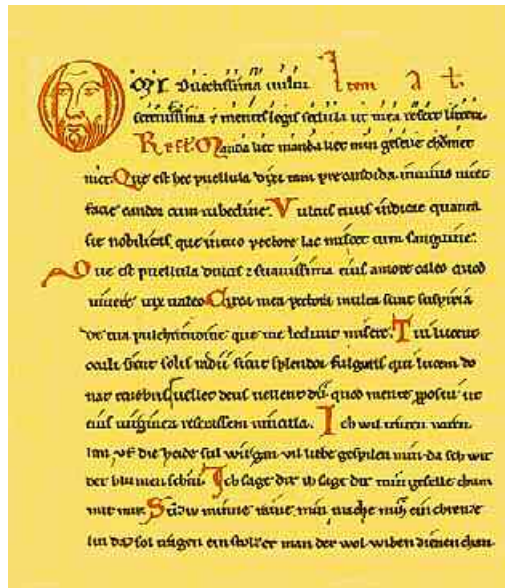 O MI Dilectissima uultu Item a t.
serenissima ⁊ mentes legis sedula ut mea refert littera.
Refl. Manda liet manda liet min geselle chōmet
niet. Que est hec puellula dixi tam precandida in cuius nitet
facie candor cum rubedine. Vultus tuus indicat quanta
sit nobilitas que in tuo pectore lac miscet cum sanguine.
Que est puellula dulcis ⁊ suauissima eius amore caleo quod
uiuere uix ualeo. Circa mea pectora multa sunt suspiria
de tua pulchritudine que me ledunt misere. Tui lucent
oculi sicut solis radii sicut splendor fulguris qui lucem do
nat tenebris. uellet deus uellent dii quod mente pposui ut
eius uirginea reserassem uincula. Ich wil truren varen
lan vf die heide sul wir gan vil liebe gespilen min da seh wir
der blumen schin. Ich sage dir ih sage dir min geselle chum
mit mir. Suziw minne raine min mache mih ein chrenze
lin daz sol tragen ein stolzer man der wol wiben dienen chan.